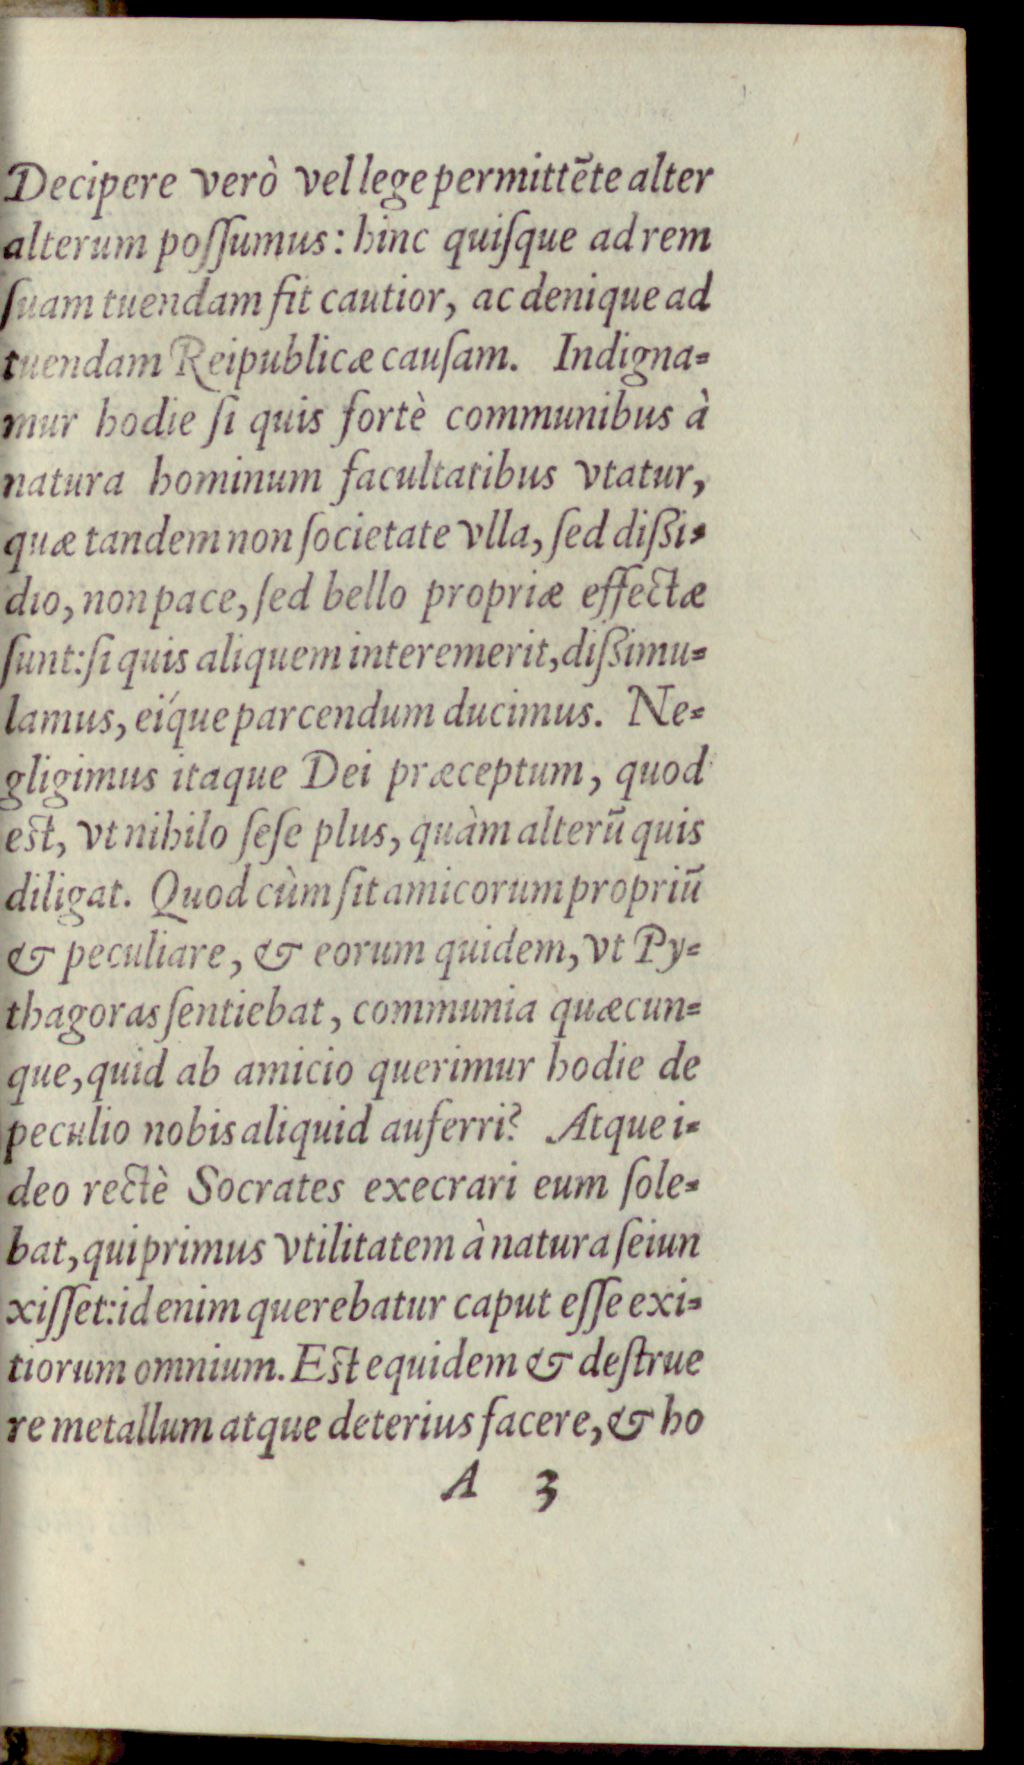 Decipere verò vel lege permittẽte alter
alterum poſſumus: hinc quiſque ad rem
ſuam tuendam fit cautior, ac denique ad
tuendam Reipublicæ cauſam. Indigna-
mur hodie ſi quis fortè communibus à
natura hominum facultatibus vtatur,
quæ tandem non ſocietate vlla, ſed dißi-
dio, non pace, ſed bello propriæ effectæ
ſunt: ſi quis aliquem interemerit, dißimu-
lamus, eíque parcendum ducimus. Ne-
gligimus itaque Dei præceptum, quod
est, vt nihilo ſeſe plus, quàm alterũ quis
diligat. Quod cùm ſit amicorum propriũ
& peculiare, & eorum quidem, vt Py-
thagoras ſentiebat, communia quæcun-
que, quid ab amicio querimur hodie de
peculio nobis aliquid auferri? Atque i-
deo rectè Socrates execrari eum ſole-
bat, qui primus vtilitatem à natura ſeiun
xiſſet: id enim querebatur caput eſſe exi-
tiorum omnium. Est equidem & deſtrue
re metallum atque deterius facere, & ho
A 3